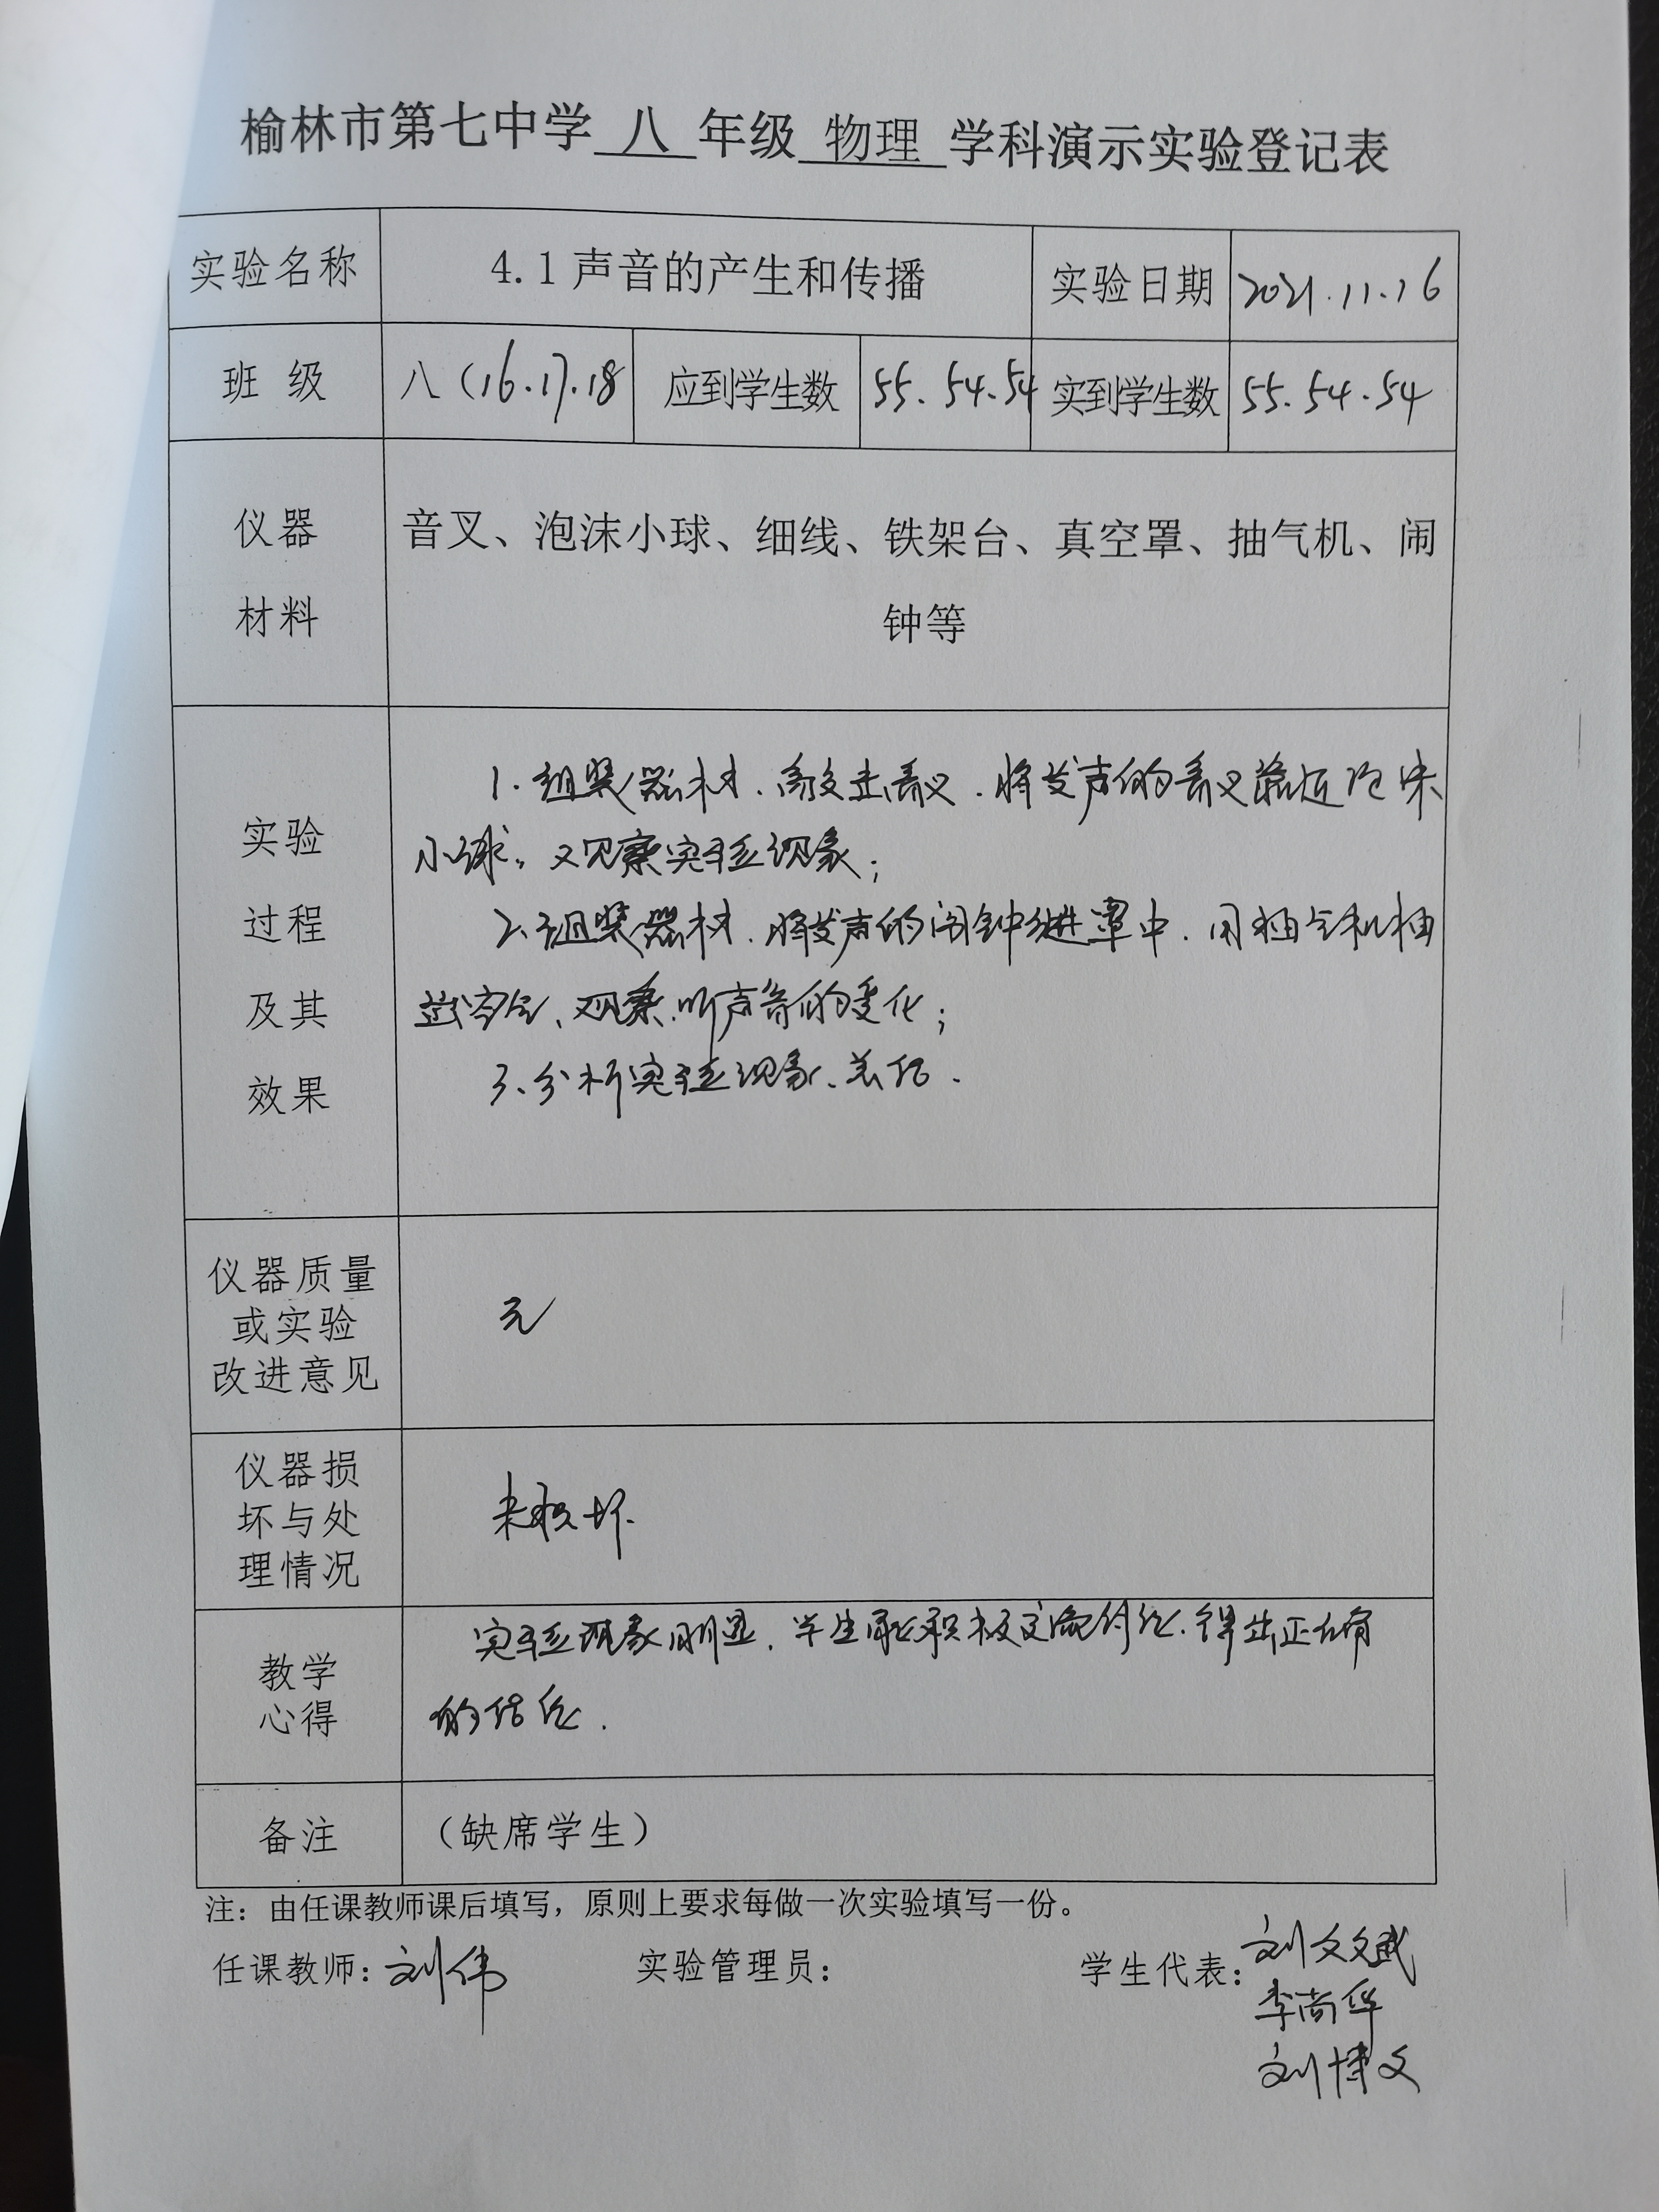 榆林市第七中学 八 年级 物理 学科演示实验登记表
实验名称 4.1 声音的产生和传播 实验日期 2021.11.16
班 级 八(16.17.18 应到学生数 55.54.54 实到学生数 55.54.54
仪器
材料
音叉、泡沫小球、细线、铁架台、真空罩、抽气机、闹
钟等
实验
过程
及其
效果
1.组装器材.敲击音叉.将发声的音叉靠近泡沫
小球,观察实验现象;
2.组装器材.将发声的闹钟放进罩中.用抽气机抽
空气、观察.听声音的变化;
3.分析实验现象、总结.
仪器质量
或实验
改进意见
无
仪器损
坏与处
理情况
未损坏.
教学
心得
实验现象明显.学生能积极交流讨论.得出正确
的结论.
备注 (缺席学生)
注:由任课教师课后填写,原则上要求每做一次实验填写一份。
任课教师:刘伟 实验管理员: 学生代表:刘文斌
李尚华
刘博文